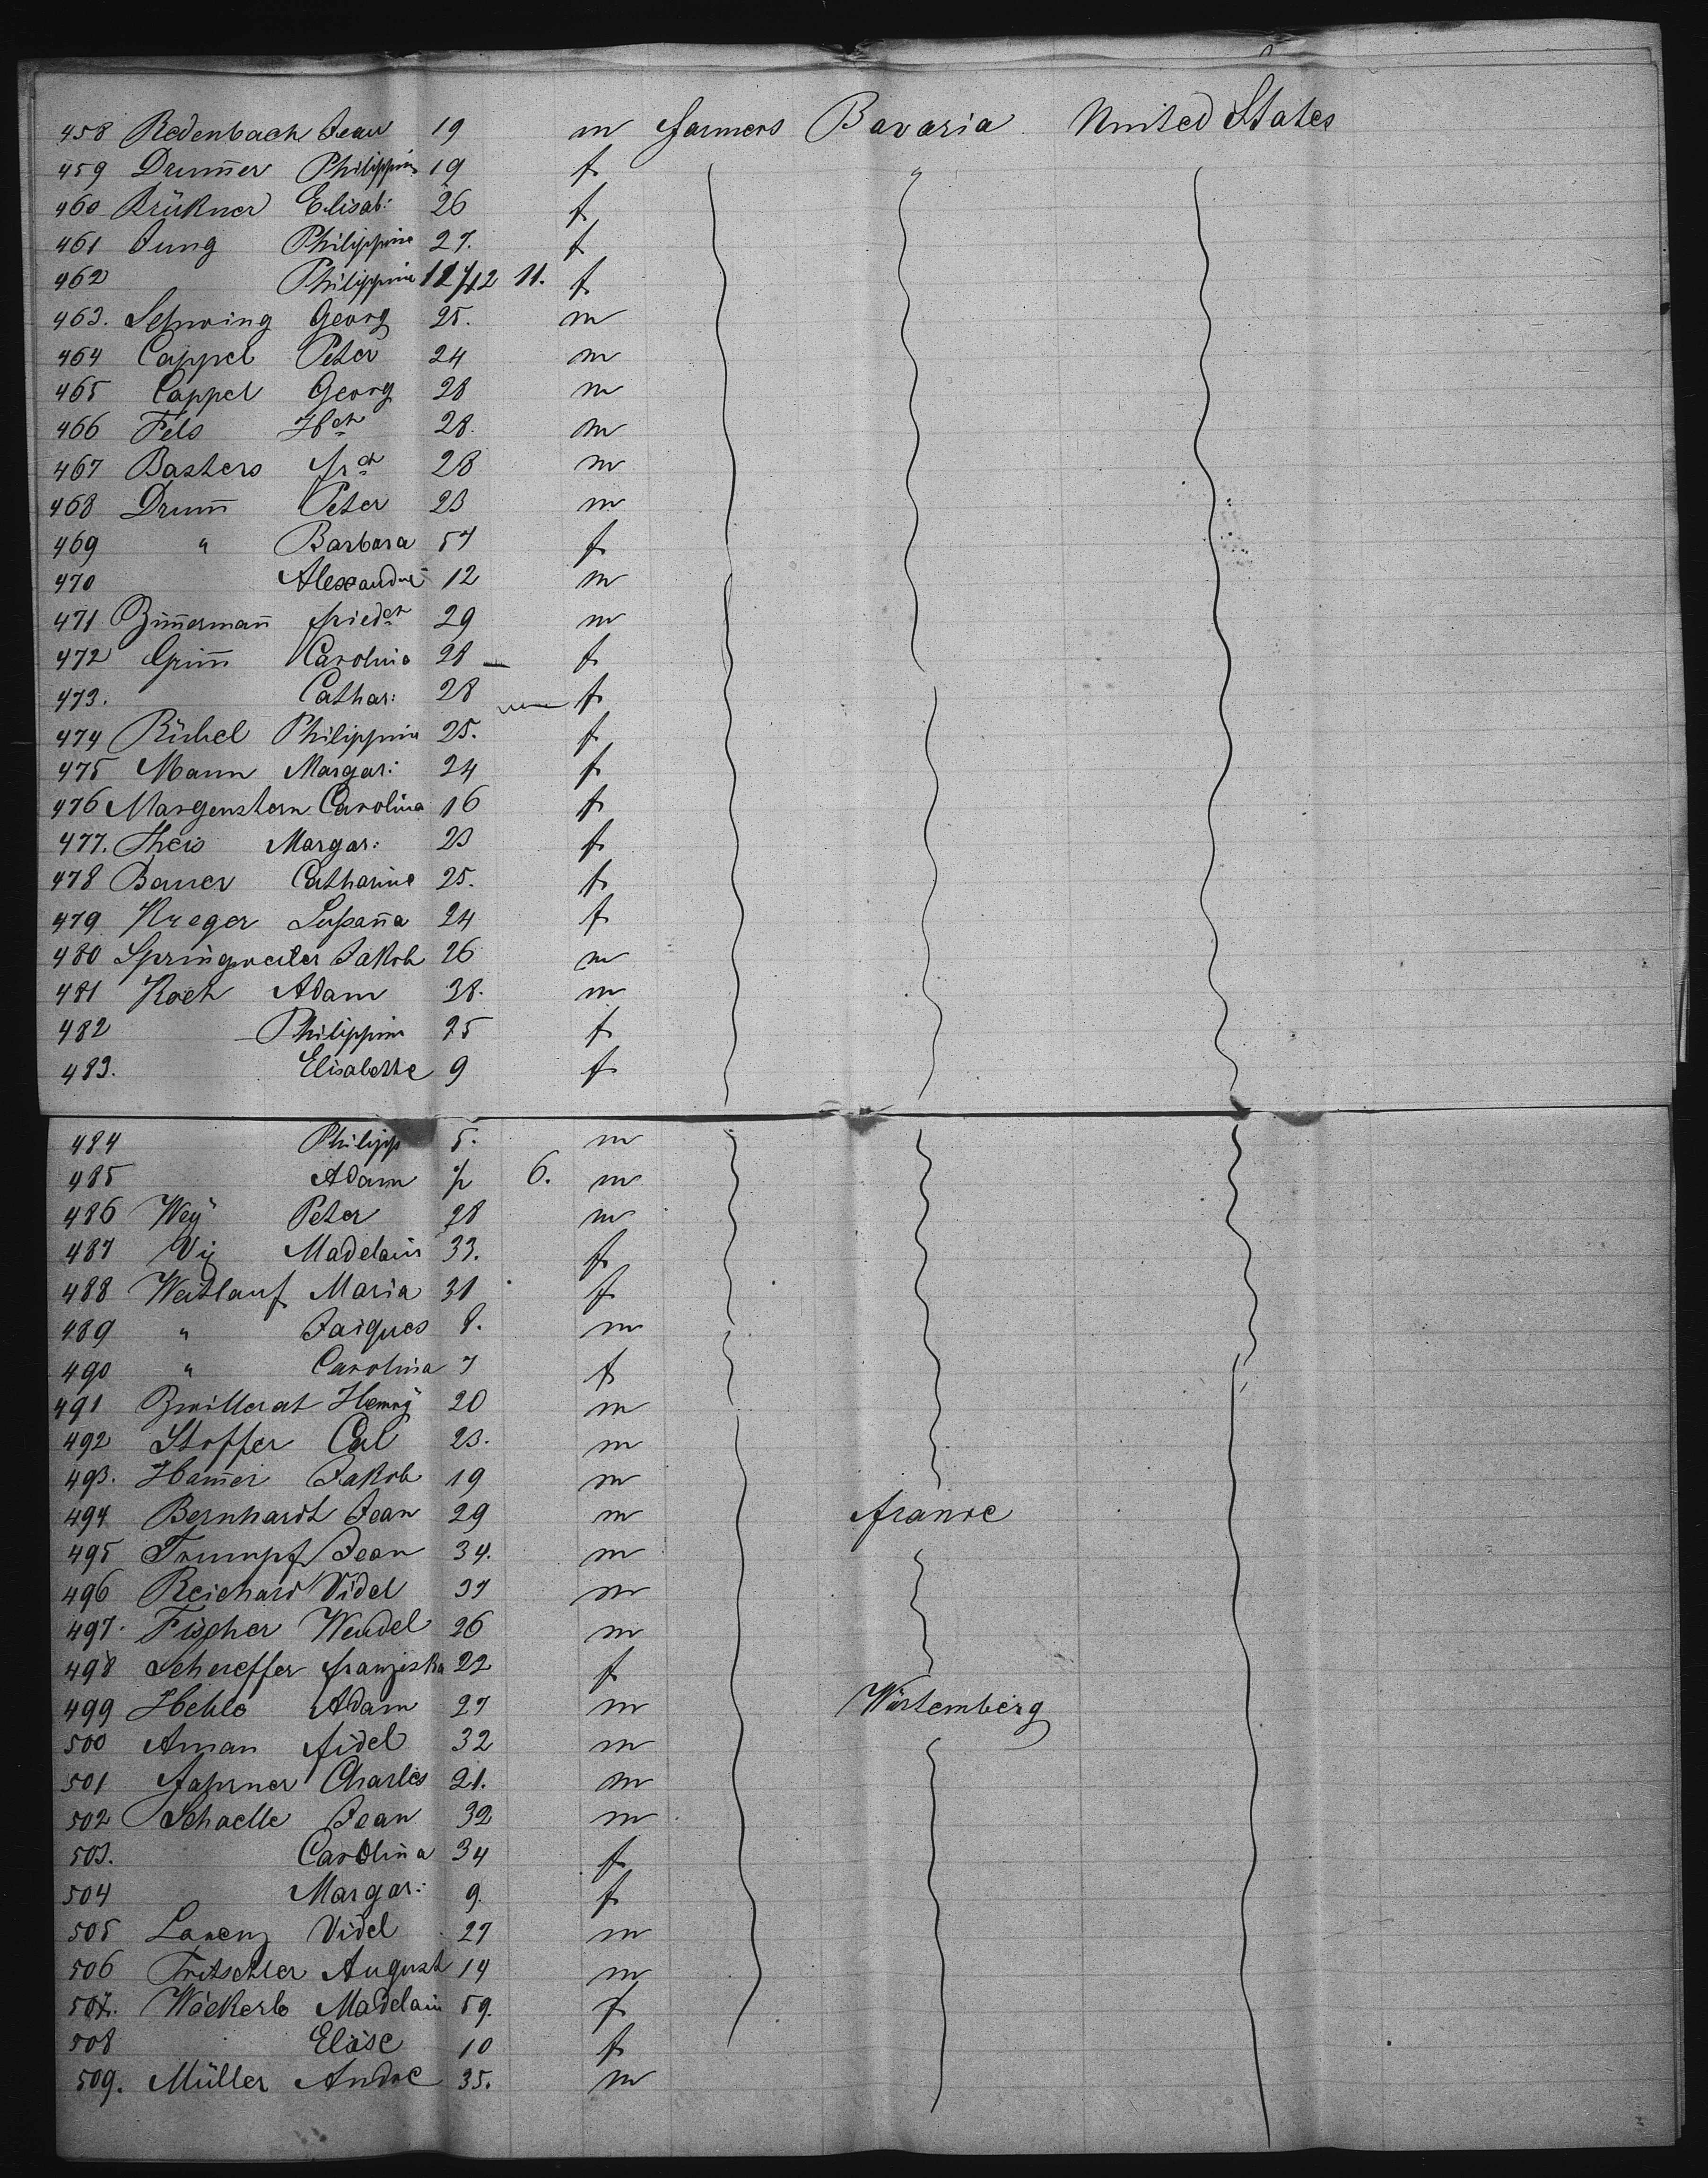 458 Redenbach Jean 19 m farmers Bavaria United States
459 Drum̄er Philippin 19 f
460 Brükner Elisab: 26 f
461 Jung Philippine 27. f
462 Philippine 11/12 11. f
463. Schwing Georg 25. m
464 Cappel Peter 24 m
465 Cappel Georg 28 m
466 Fels Hch 28. m
467 Basters frch 28 m
468 Drum̄ Peter 23 m
469 " Barbara 57 f
470 Alexandre 12 m
471 Zim̄erman̄ friedch 29 m
472 Grim̄ Carolina 28 f
473. Cathar: 28 f
474 Rübel Philippine 25. f
475 Mann Margar: 24 f
476 Morgenstern Carolina 16 f
477. Theis Margar: 23 f
478 Bauer Catharine 25. f
479 Krieger Susan̄a 24 f
480 Springweiler Jakob 26 m
481 Koch Adam 38. m
482 Philippine 35 f
483. Elisabethe 9 f
484 Philipp 5. m
485 Adam 6. m
486 Weÿ Peter 28 m
487 Madelain 33. f
488 Weitlauf Maria 31 f
489 " Jaiques 8. m
490 " Carolina 7 f
491 Zwillerat Henrÿ 20 m
492 Stoffer Carl 23. m
493. Ham̄er Jakob 19 m
494 Bernhardt Jean 29 m france
495 Trumpf Jean 34. m
496 Reichard Videl 37 m
497. Fischer Wendel 26 m
498 Schereffer franziska 22 f
499 Hehle Adam 27 m Würtemberg
500 Aman fidel 32 m
501 Charles 21. m
502 Schaelle Jean 32 m
503. Carolina 34 f
504 Margar: 9. f
505 Lorenz Videl 27 m
506 Fritschler August 14 m
507. Wäckerle Madelain 59. f
508 Elise 10 f
509. Müller Andre 35. m